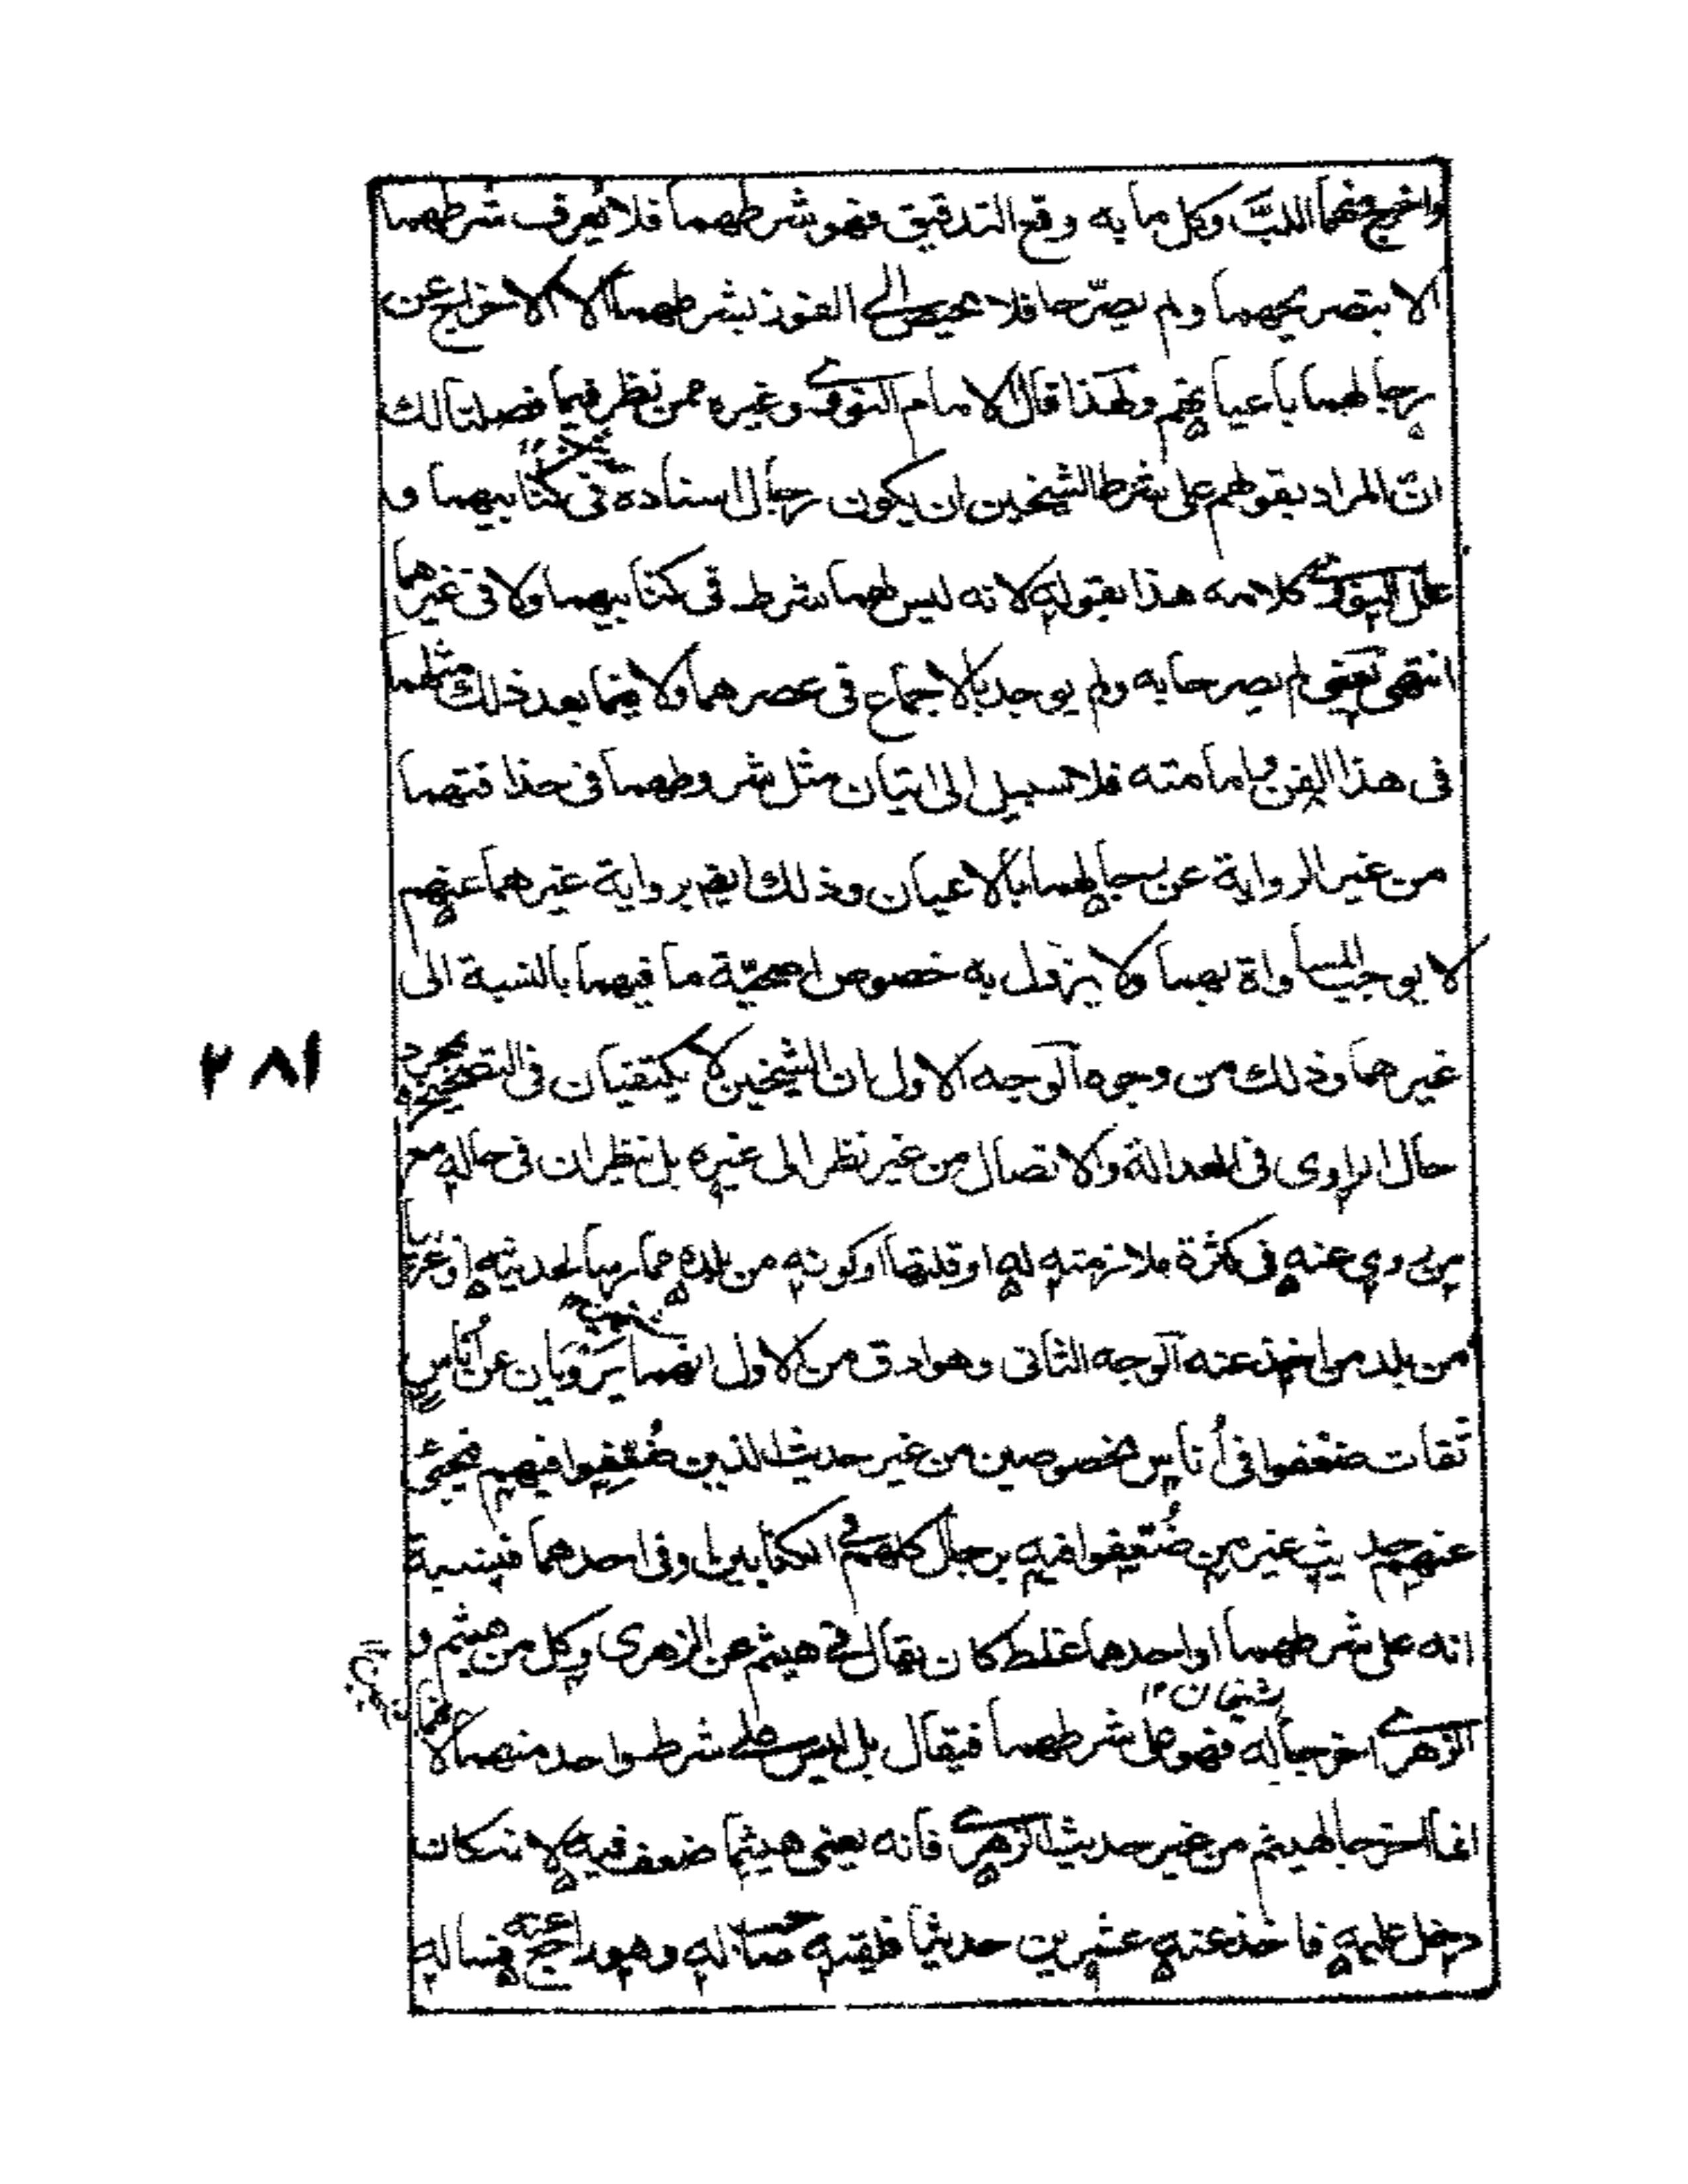 واخرج منهما اللبَّ وكل ما به وقع التدقيق فهو شرطهما فلا يُعرف شرطهما
الا بتصريحهما ولم يصرّحا فلا محيص الى الفوز بشرطهما الا الاخراج عن
رجالهما باعيانهم ولهذا قال الامام النووى وغيره ممن نظر فيما فصلنا لك
انّ المراد بقولهم على شرط الشيخين ان يكون رجال اسناده فى كتابيهما و
علل النووى كلامه هذا بقوله لانه ليس لهما شرط فى كتابيهما ولا فى غيرهما
انتهى يعنى لم يصرحا به ولم يوجد بالاجماع فى عصرهما ولا فيما بعد ذلك مثلهما
فى هذا الفن وامامته فلا سبيل الى اتيان مثل شروطهما فى حذاقتهما
من غير الرواية عن رجالهما بالاعيان وذلك ايضا برواية غيرهما عنهم
لا يوجب المساواة بهما ولا يزول به خصوص اصحيّة ما فيهما بالنسبة الى
غيرهما وذلك من وجوه الوجه الاول ان الشيخين لا يكتفيان فى التصحيح بمجرد
٢٨١
حال الراوى فى العدالة والاتصال من غير نظر الى غيره بل ينظران فى حاله مع
من روى عنه فى كثرة ملازمته له او قلتها او كونه من بلده ممارسا لحديثه او غريبا
من بلد من اخذ عنه الوجه الثانى وهو ادق من الاول انهما يَرْوِيَان عن اُنَاسٍ
ثقات ضعفوا فى اُناس مخصوصين من غير حديث الذين ضُعِّفوا فيهم فيجئ
عنهم حديث عن من ضُعِّفوا فيه برجال كلهم فى الكتابين او فى احدهما فنسبة
انه على شرطهما او احدهما غلط كان يقال فى هيثم عن الزهرى وكل من هيثم و
شيخان ١٢
الزهرى اخرجا له فهو على شرطهما فيقال بل ليس على شرط واحد منهما لا
انما اخرجا لهيثم من غير حديث الزهرى فانه يعنى هيثما ضعف فيه لانه كان
دخل عليه فاخذ عنه عشرين حديثا فلقيه صاحب له وهو راجع عنه فساله